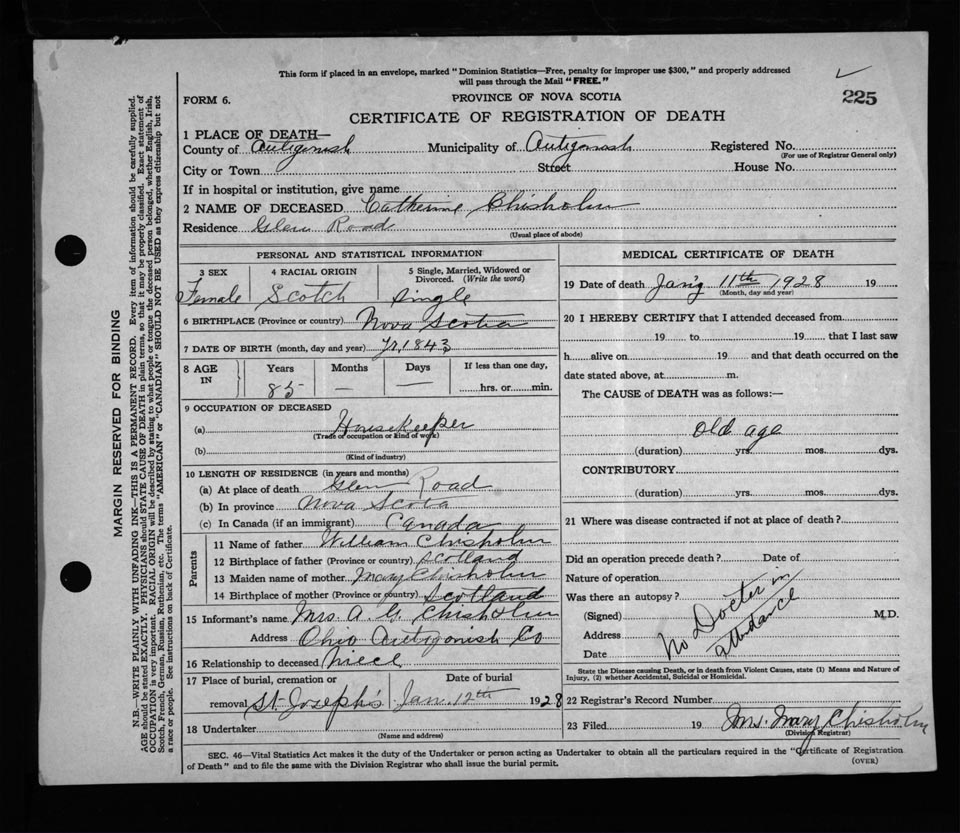 This form if placed in an envelope, marked "Dominion Statistics—Free, penalty for improper use $300," and properly addressed
will pass through the Mail "FREE."
225
FORM 6.
PROVINCE OF NOVA SCOTIA
CERTIFICATE OF REGISTRATION OF DEATH
1 PLACE OF DEATH—
County of Antigonish Municipality of Antigonish Registered No.
(For use of Registrar General only)
City or Town Street House No.
If in hospital or institution, give name
2 NAME OF DECEASED Catherine Chisholm
Residence Glen Road
(Usual place of abode)
PERSONAL AND STATISTICAL INFORMATION
3 SEX 4 RACIAL ORIGIN 5 Single, Married, Widowed or
Divorced. (Write the word)
Female Scotch Single
6 BIRTHPLACE (Province or country) Nova Scotia
7 DATE OF BIRTH (month, day and year) Yr, 1843
8 AGE
IN
Years Months Days If less than one day,
85 — — hrs. or min.
9 OCCUPATION OF DECEASED
(a) Housekeeper
(Trade or occupation or kind of work)
(b)
(Kind of industry)
10 LENGTH OF RESIDENCE (in years and months)
(a) At place of death Glen Road
(b) In province Nova Scotia
(c) In Canada (if an immigrant) Canada
Parents
11 Name of father William Chisholm
12 Birthplace of father (Province or country) Scotland
13 Maiden name of mother Mary Chisholm
14 Birthplace of mother (Province or country) Scotland
15 Informant's name Mrs. A. G. Chisholm
Address Ohio Antigonish Co
16 Relationship to deceased niece
17 Place of burial, cremation or Date of burial
removal St. Joseph's Jan. 12th 1928
18 Undertaker
(Name and address)
MEDICAL CERTIFICATE OF DEATH
19 Date of death Jan'y 11th 1928 19
(Month, day and year)
20 I HEREBY CERTIFY that I attended deceased from
19 to 19 that I last saw
h alive on 19 and that death occurred on the
date stated above, at m.
The CAUSE of DEATH was as follows:—
Old age
(duration) yrs. mos. dys.
CONTRIBUTORY
(duration) yrs. mos. dys.
21 Where was disease contracted if not at place of death?
Did an operation precede death? Date of
Nature of operation
Was there an autopsy?
(Signed) M.D.
Address
Date
No Docter in
attendance
State the Disease causing Death, or in death from Violent Causes, state (1) Means and Nature of
Injury, (2) whether Accidental, Suicidal or Homicidal.
22 Registrar's Record Number
23 Filed 19 Mrs. Mary Chisholm
(Division Registrar)
SEC. 46—Vital Statistics Act makes it the duty of the Undertaker or person acting as Undertaker to obtain all the particulars required in the "Certificate of Registration
of Death" and to file the same with the Division Registrar who shall issue the burial permit.
(OVER)
MARGIN RESERVED FOR BINDING
N.B.—WRITE PLAINLY WITH UNFADING INK—THIS IS A PERMANENT RECORD. Every item of information should be carefully supplied.
AGE should be stated EXACTLY. PHYSICIANS should STATE CAUSE OF DEATH in plain terms, so that it may be properly classified. Exact statement of
OCCUPATION is very important. RACIAL ORIGIN will be described by stating to what people or tongue the deceased person belonged, whether English, Irish,
Scotch, French, German, Russian, Ruthenian, etc. The terms "AMERICAN" or "CANADIAN" SHOULD NOT BE USED as they express citizenship but not
a race or people. See instructions on back of Certificate.